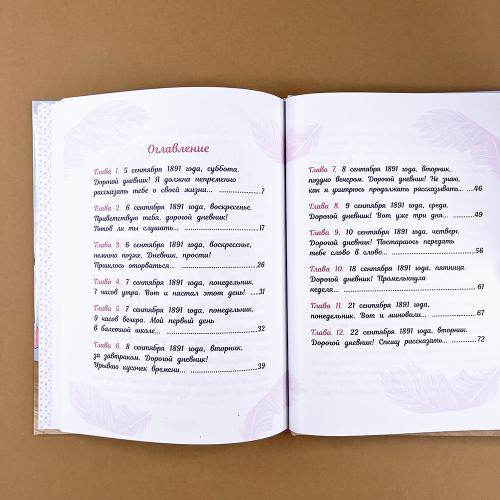 Оглавление
Глава 1. 5 сентября 1891 года, суббота.
Дорогой дневник! Я должна непременно
рассказать тебе о своей жизни... ...................7
Глава 2. 6 сентября 1891 года, воскресенье.
Приветствую тебя, дорогой дневник!
Готов ли ты слушать... ...................17
Глава 3. 6 сентября 1891 года, воскресенье,
немного позже. Дневник, прости!
Пришлось оторваться... ...................26
Глава 4. 7 сентября 1891 года, понедельник,
7 часов утра. Вот и настал этот день! ....31
Глава 5. 7 сентября 1891 года, понедельник,
9 часов вечера. Мой первый день
в балетной школе... ...................32
Глава 6. 8 сентября 1891 года, вторник,
за завтраком. Дорогой дневник!
Урываю кусочек времени... ...................39
Глава 7. 8 сентября 1891 года, вторник,
поздно вечером. Дорогой дневник! Не знаю,
как я ухитрюсь продолжать рассказывать... ....46
Глава 8. 9 сентября 1891 года, среда.
Дорогой дневник! Вот уже три дня... ..........49
Глава 9. 10 сентября 1891 года, четверг.
Дорогой дневник! Постараюсь передать
тебе слово в слово... ...................56
Глава 10. 18 сентября 1891 года, пятница.
Дорогой дневник! Промелькнула
неделя... ...................61
Глава 11. 21 сентября 1891 года,
понедельник. Вот и миновали... ...................67
Глава 12. 22 сентября 1891 года, вторник.
Дорогой дневник! Спешу рассказать... ..........72